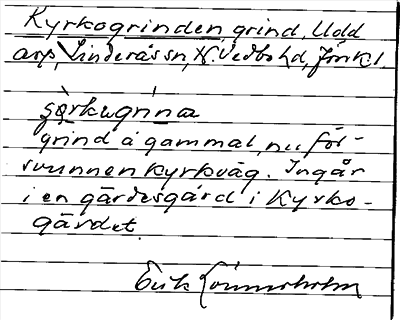 Kyrkogrinden, grind, Udd
arp, Linderås sn, N. Vedbo hd, Jönk l
grind å gammal, nu för-
svunnen kyrkväg. Ingår
i en gärdesgård i Kyrko-
gärdet.
Erik